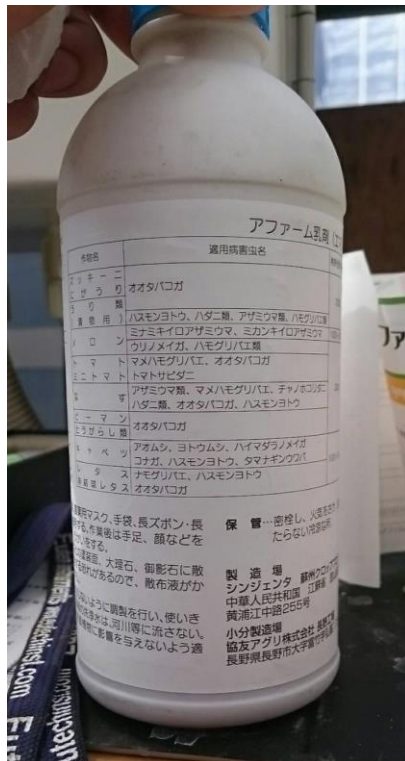 アファーム乳剤
作物名
適用病害虫名
ズッキーニ
にがうり
オオタバコガ
うり類
(漬物用)
ハスモンヨトウ、ハダニ類、アザミウマ類、ハモグリバエ類
メロン
ミナミキイロアザミウマ、ミカンキイロアザミウマ
ウリノメイガ、ハモグリバエ類
トマト
マメハモグリバエ、オオタバコガ
ミニトマト
トマトサビダニ
なす
アザミウマ類、マメハモグリバエ、チャノホコリダニ
ハダニ類、オオタバコガ、ハスモンヨトウ
ピーマン
とうがらし類
オオタバコガ
キャベツ
アオムシ、ヨトウムシ、ハイマダラノメイガ
コナガ、ハスモンヨトウ、タマナギンウワバ
レタス
ナモグリバエ、ハスモンヨトウ
非結球レタス
オオタバコガ
用マスク、手袋、長ズボン・長
する。作業後は手足、顔などを
をする。
塗装面、大理石、御影石に散
る恐れがあるので、散布液がか
ないように調製を行い、使いき
は、河川等に流さない。
に影響を与えないよう適
保 管…密栓し、火気をさけ
たらない冷涼な所
製 造 場
シンジェンタ 蘇州クロップ
中華人民共和国 江蘇省
黄浦江中路255号
小分製造場
協友アグリ株式会社 長野工場
長野県長野市大字富竹字弘誓
utechnsl.com